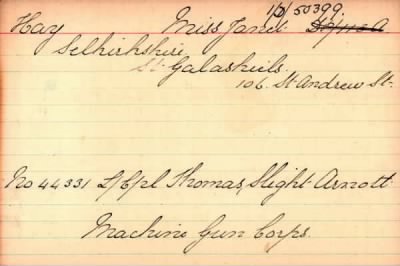 10/50399.
Hay Miss Janet
Selkirkshire
Galashiels
106. St Andrew St.
No 44331 L/Cpl Thomas Slight Arnott
Machine Gun Corps.